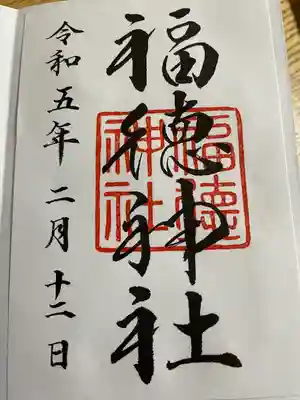 福徳神社
令和五年二月十二日
福徳神社